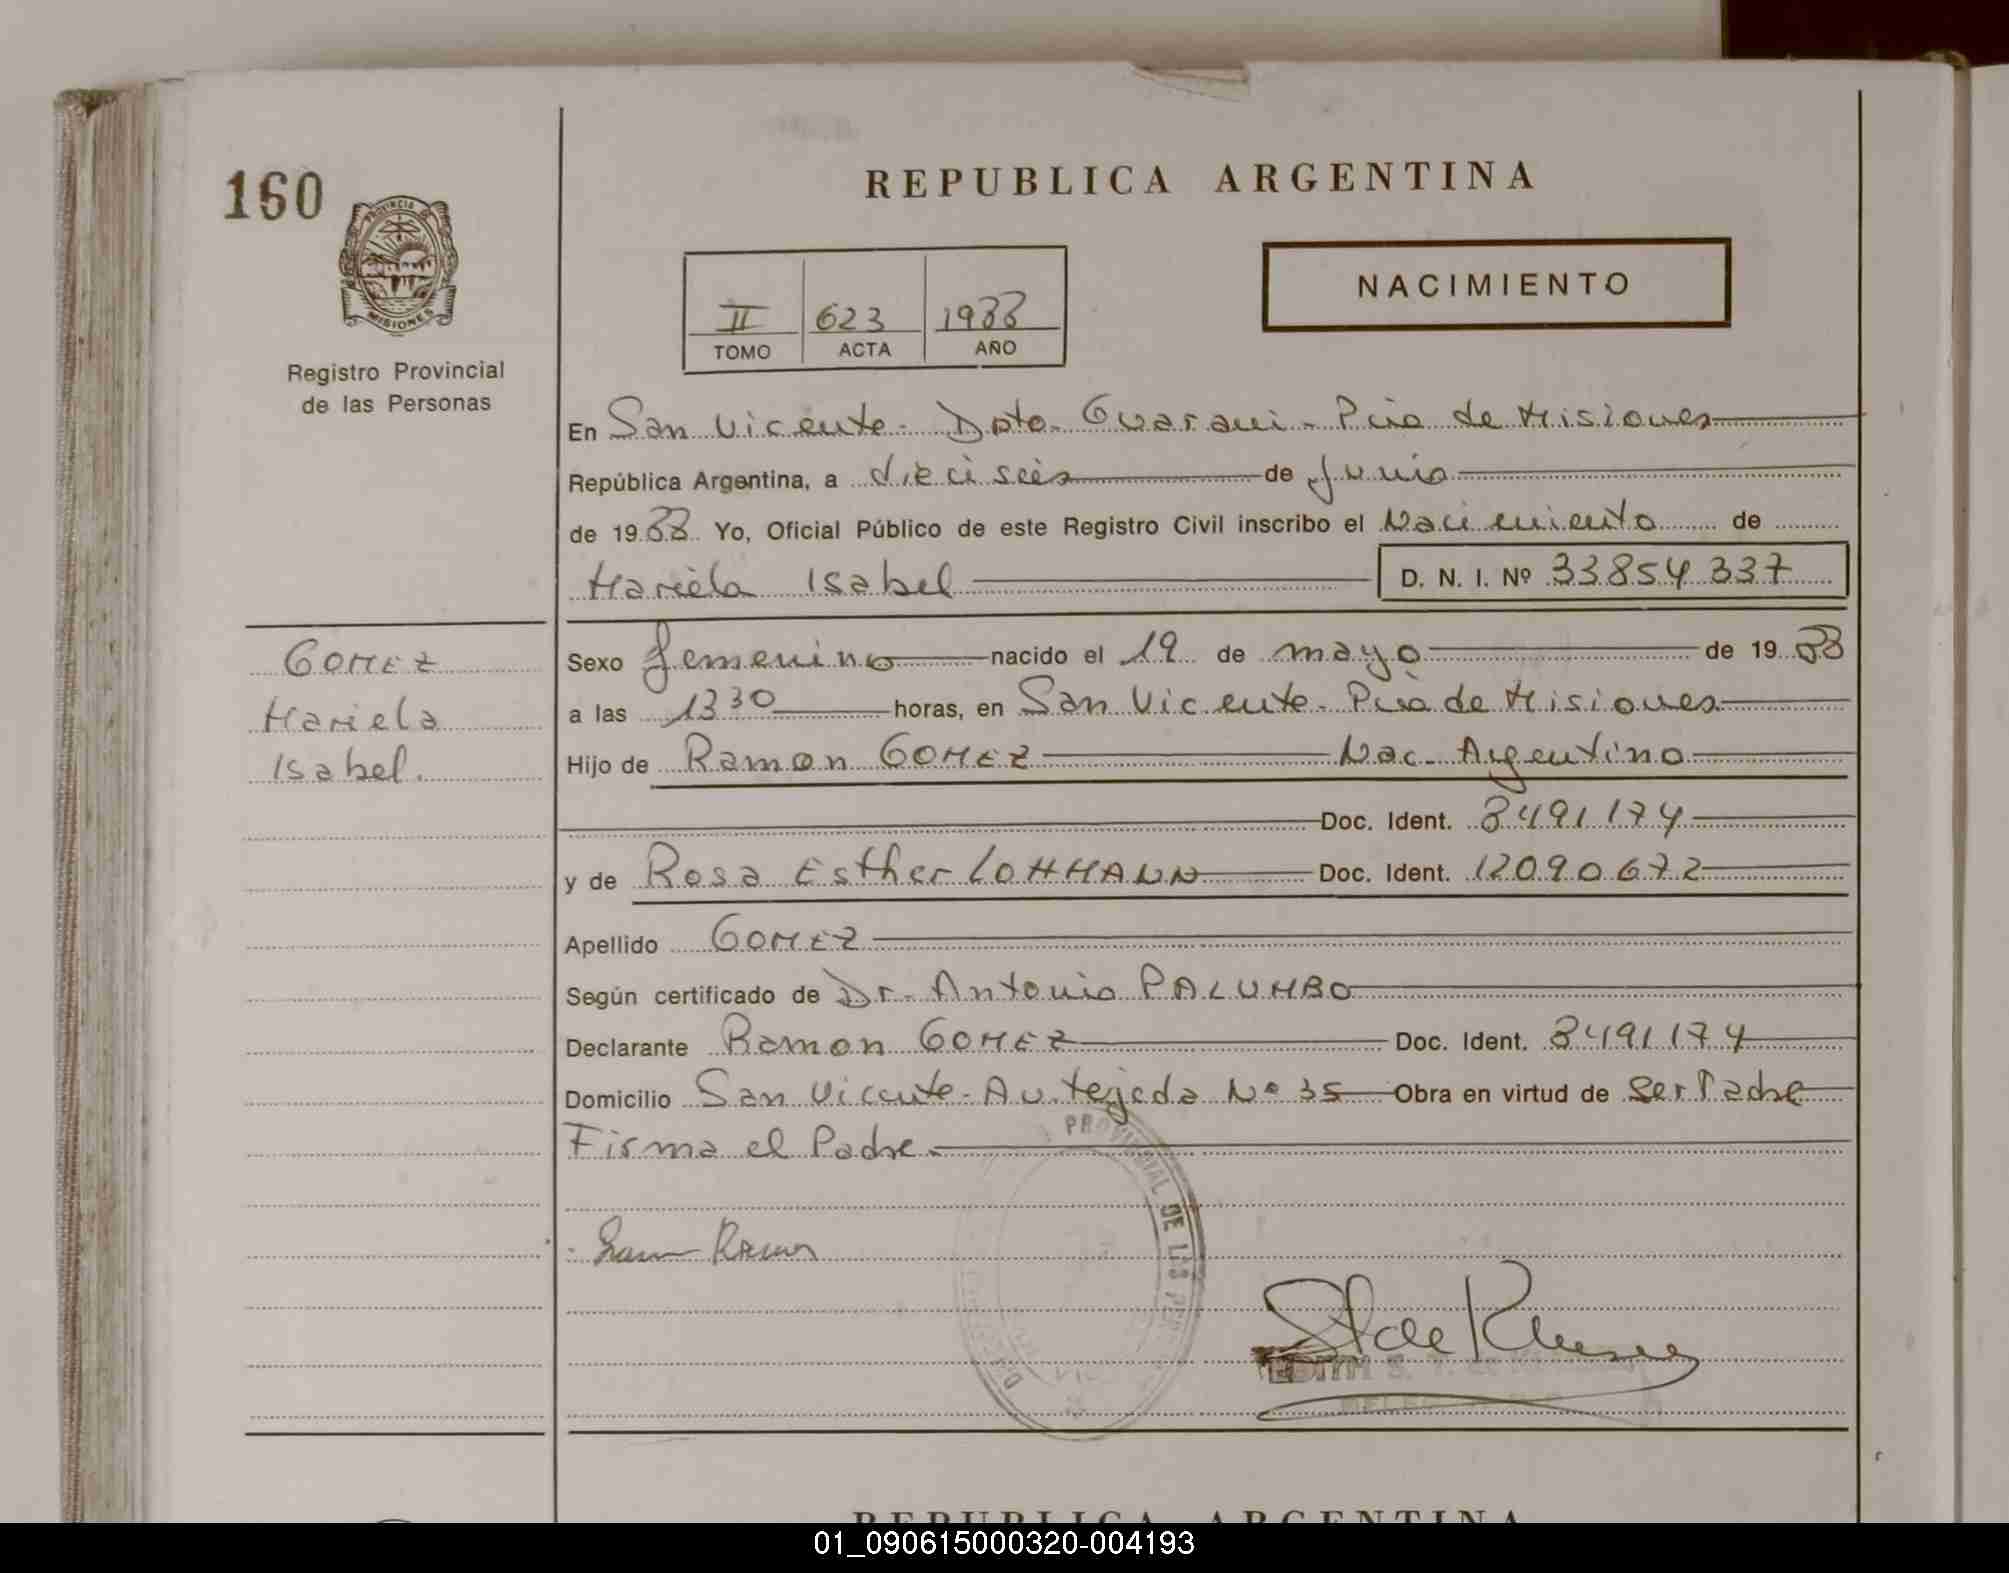 REPUBLICA ARGENTINA
160
PROVINCIA DE
MISIONES
NACIMIENTO
II 623 1988
TOMO ACTA AÑO
Registro Provincial
de las Personas
En San Vicente - Dpto. Guarani - Pcia de Misiones
República Argentina, a dieciseis de Junio
de 1988 Yo, Oficial Público de este Registro Civil inscribo el Nacimiento de
Mariela Isabel D. N. I. Nº 33854337
GOMEZ
Mariela
Isabel.
Sexo femenino nacido el 19 de mayo de 1988
a las 13 30 horas, en San Vicente - Pcia de Misiones
Hijo de Ramon GOMEZ Nac. Argentino
Doc. Ident. 8491174
y de Rosa Esther LOHMANN Doc. Ident. 12090672
Apellido GOMEZ
Según certificado de Dr. Antonio PALUMBO
Declarante Ramon GOMEZ Doc. Ident. 8491174
Domicilio San Vicente - Av. Tejeda Nº 35 Obra en virtud de Ser Padre
Firma el Padre.
PROVINCIAL DE LAS
EDITH S. T. de
REPUBLICA ARGENTINA
01_090615000320-004193